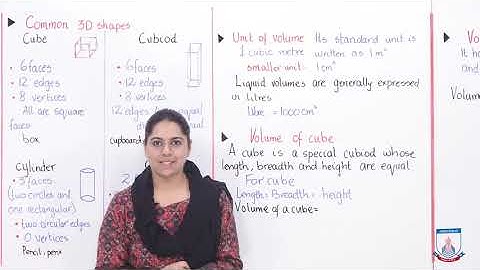 Common 3D shapes
Cube
6 faces
12 edges
8 vertices
All are square
faces
box
Cuboid
6 faces
12 edges
8 vertices
12 edges
cupboard
Cylinder
3 faces
(two circles and
one rectangular)
two circular edges
0 vertices
Pencil, pens
2
Unit of volume Its standard unit is
1 cubic metre written as 1m³
smaller unit 1cm³
Liquid volumes are generally expressed
in litres
= 1000 cm³
Volume of cube
A cube is a special cubiod whose
length, breadth and height are equal
For cube
Length = Breadth = height
Volume of a cube=
It ha
and
Volume